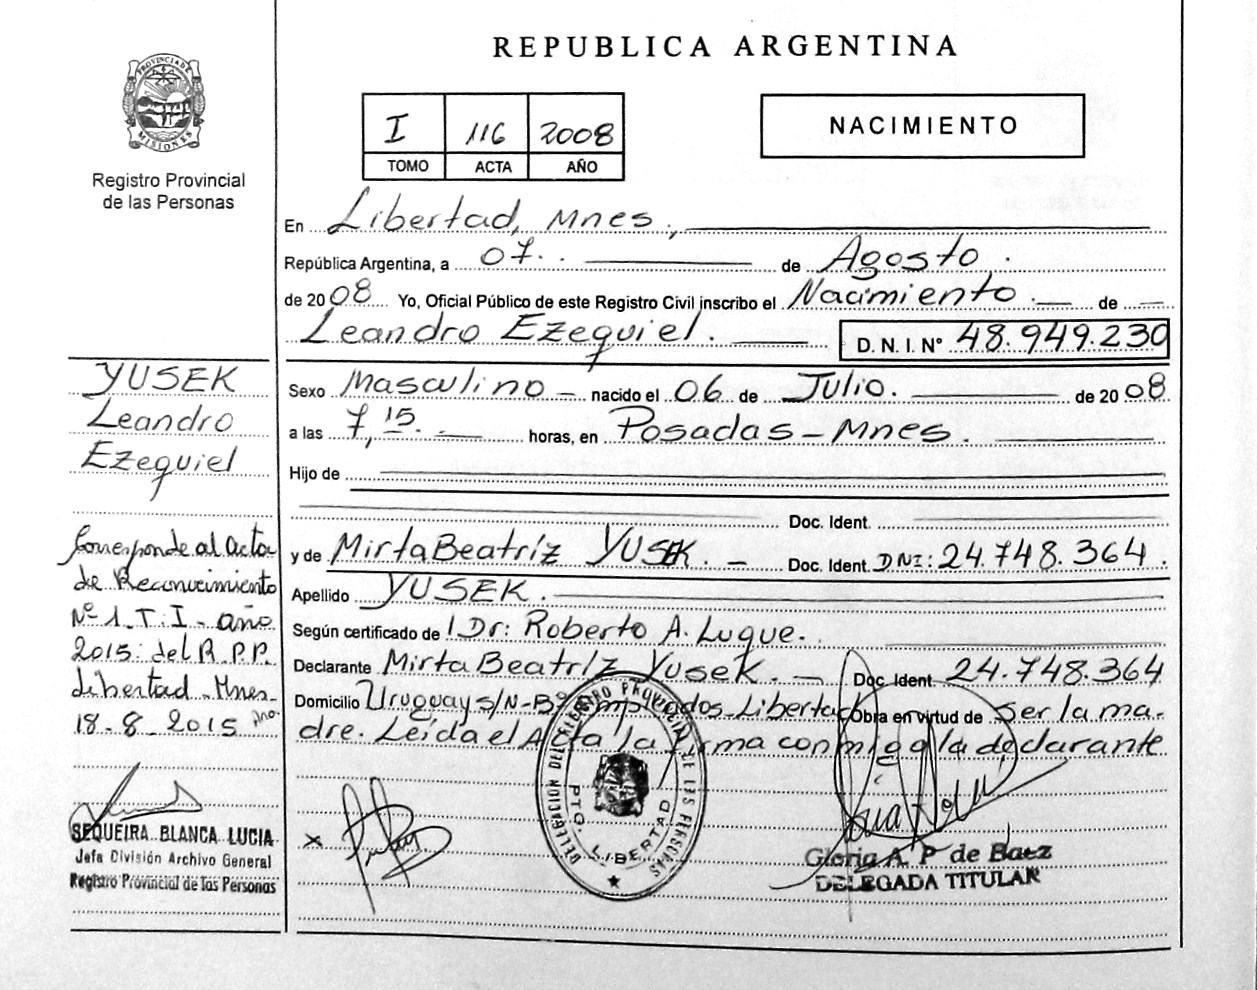 REPUBLICA ARGENTINA
PROVINCIA DE
MISIONES
Registro Provincial
de las Personas
I 116 2008
TOMO ACTA AÑO
NACIMIENTO
En Libertad, Mnes,
República Argentina, a 07. de Agosto.
de 2008 Yo, Oficial Público de este Registro Civil inscribo el Nacimiento. de
Leandro Ezequiel. D. N. I. Nº 48.949.230
Sexo Masculino nacido el 06 de Julio. de 2008
a las 7,15. horas, en Posadas - Mnes.
Hijo de
Doc. Ident.
y de Mirta Beatríz YUSEK. Doc. Ident. DNI: 24.748.364.
Apellido YUSEK.
Según certificado de Dr: Roberto A. Luque.
Declarante Mirta Beatríz Yusek. Doc. Ident. 24.748.364
Domicilio Uruguay s/N - Bº Empleados Libertad Obra en virtud de ser la ma-
dre. Leída el Acta la firma conmigo la declarante
YUSEK
Leandro
Ezequiel
Corresponde al Acta
de Reconocimiento
Nº 1 - T: I - año
2015 del R.P.P.
Libertad - Mnes -
18 - 8 - 2015
SEQUEIRA BLANCA LUCIA
Jefa División Archivo General
Registro Provincial de las Personas
x
DELEGACION DEL REGISTRO PROVINCIAL DE LAS PERSONAS
PTO. LIBERTAD
Gloria A. P. de Baez
DELEGADA TITULAR